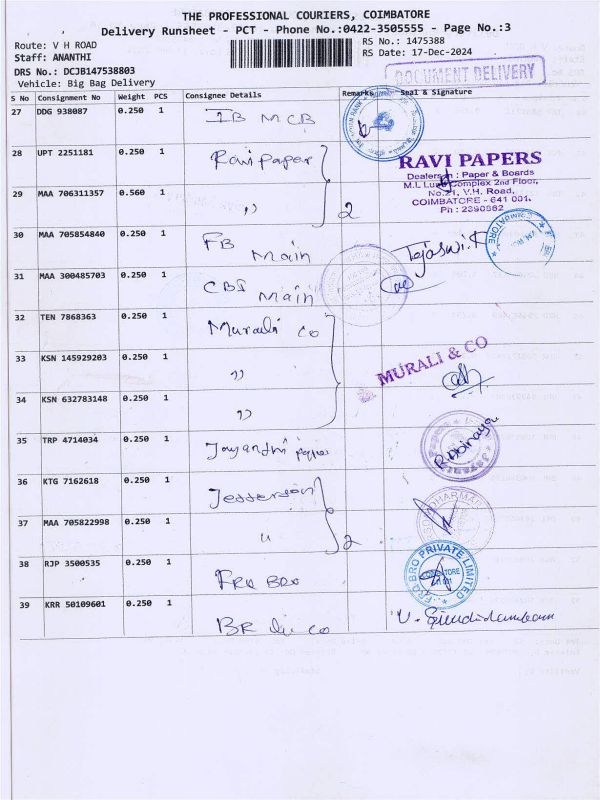 THE PROFESSIONAL COURIERS, COIMBATORE
Delivery Runsheet - PCT - Phone No.:0422-3505555 - Page No.:3
Route: V H ROAD
RS No.: 1475388
Staff: ANANTHI
RS Date: 17-Dec-2024
DRS No.: DCJB147538803
DOCUMENT DELIVERY
Vehicle: Big Bag Delivery
S No Consignment No Weight PCS Consignee Details Remarks Seal & Signature
27 DDG 938087 0.250 1 IB MCB
28 UPT 2251181 0.250 1 Ravi paper
RAVI PAPERS
Dealers in : Paper & Boards
M.L Complex 2nd Floor,
No.21, V.H. Road,
COIMBATORE - 641 001.
Ph : 2390862
29 MAA 706311357 0.560 1 ,, 2
30 MAA 705854840 0.250 1 FB Main
Tejaswi.
31 MAA 300485703 0.250 1 CBI Main
32 TEN 7868363 0.250 1 Murali co
33 KSN 145929203 0.250 1 ,,
MURALI & CO
34 KSN 632783148 0.250 1 ,,
35 TRP 4714034 0.250 1 Jayanthi
36 KTG 7162618 0.250 1 Jefferson
37 MAA 705822998 0.250 1 " 2
38 RJP 3500535 0.250 1 FRQ BRO
FRQ BRO PRIVATE LIMITED
COIMBATORE
39 KRR 50109601 0.250 1 BR & co